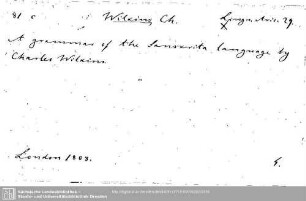 81 c Wilkins Ch. Lingu. Asia. 29.
A grammar of the Sanscrita language by
Charles Wilkins
London 1808.
Sächsische Landesbibliothek -
Staats- und Universitätsbibliothek Dresden